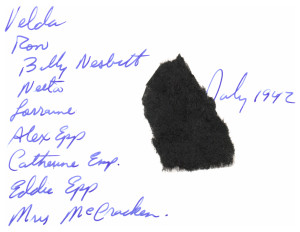 Velda
Ron
Billy Nesbett
Neeto
Lorraine
Alex Epp
Catherine Emp.
Eddie Epp
Mrs McCracken.
July 1942